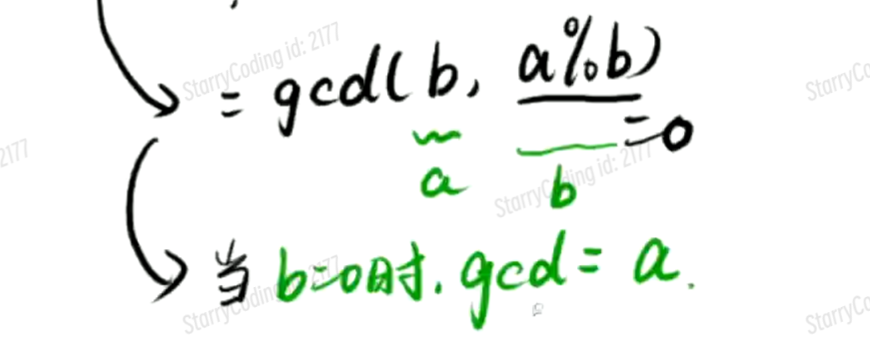 StarryCoding id: 2177
StarryCo
= gcd( b, a%b)
=0
2177
a
b
StarryCoding id: 2177
当 b=0时. gcd = a.
StarryCoding id: 2177
StarryCo